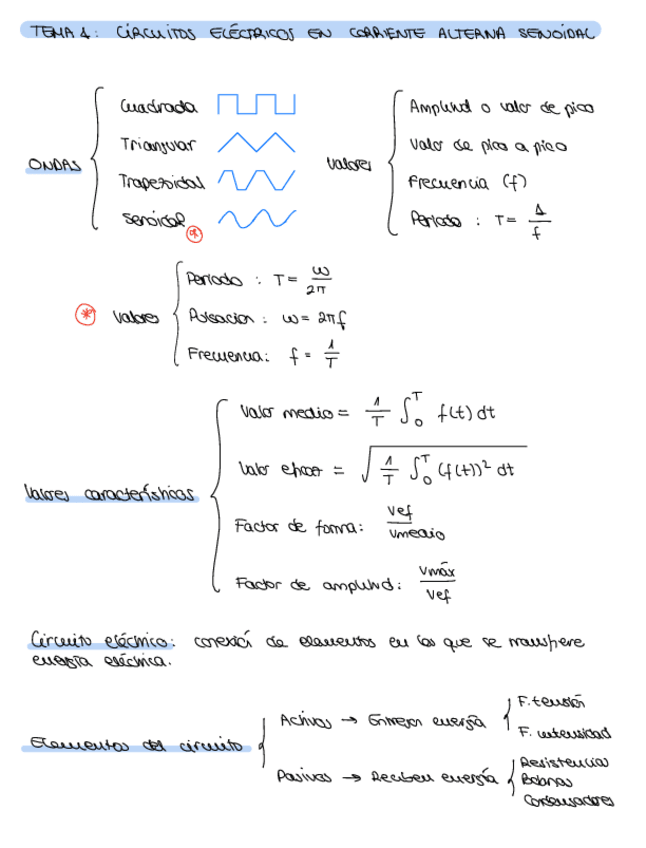 TEMA 1: CIRCUITOS ELÉCTRICOS EN CORRIENTE ALTERNA SENOIDAL
ONDAS
Cuadrada
Triangular
Trapezoidal
Senoidal *
Valores
Amplitud o valor de pico
Valor de pico a pico
Frecuencia (f)
Periodo : T = 1/f
* Valores
Periodo : T = ω/2π
Pulsación : ω = 2πf
Frecuencia: f = 1/T
Valores característicos
Valor medio = 1/T ∫₀ᵀ f(t) dt
Valor eficaz = √(1/T ∫₀ᵀ (f(t))² dt)
Factor de forma: Vef/Vmedio
Factor de amplitud: Vmáx/Vef
Circuito eléctrico: conexión de elementos en los que se transfiere
energía eléctrica.
Elementos del circuito
Activos → Entregan energía
F. tensión
F. intensidad
Pasivos → Reciben energía
Resistencias
Bobinas
Condensadores